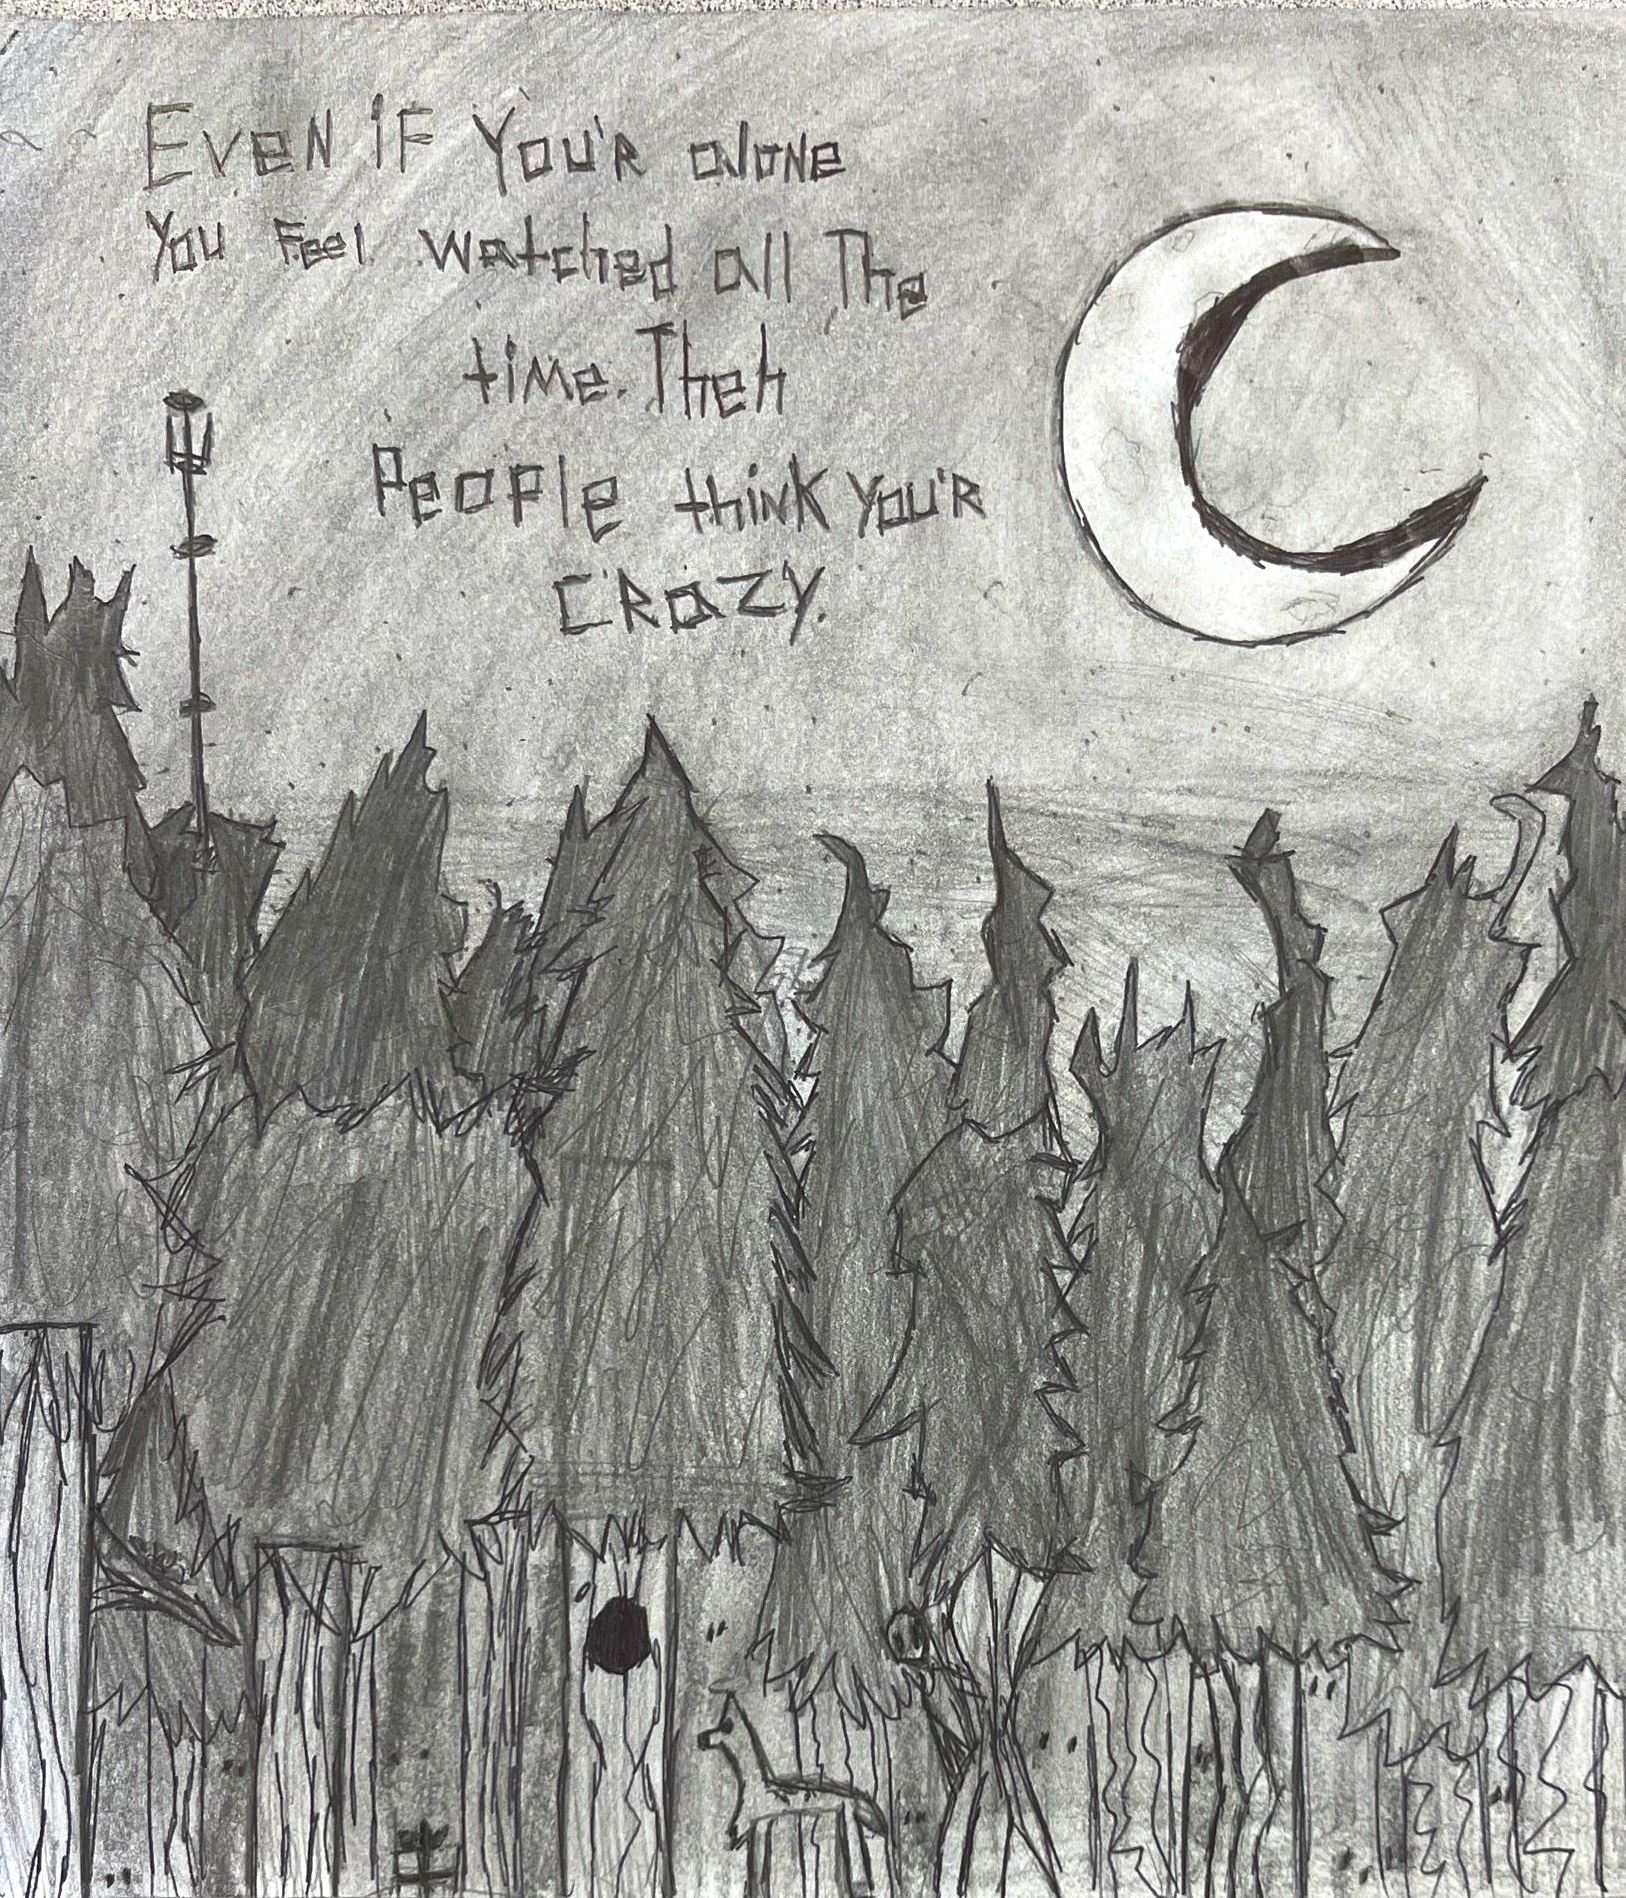 Even if You'r alone
You Feel watched all The
time. Then
People think you'r
Crazy.